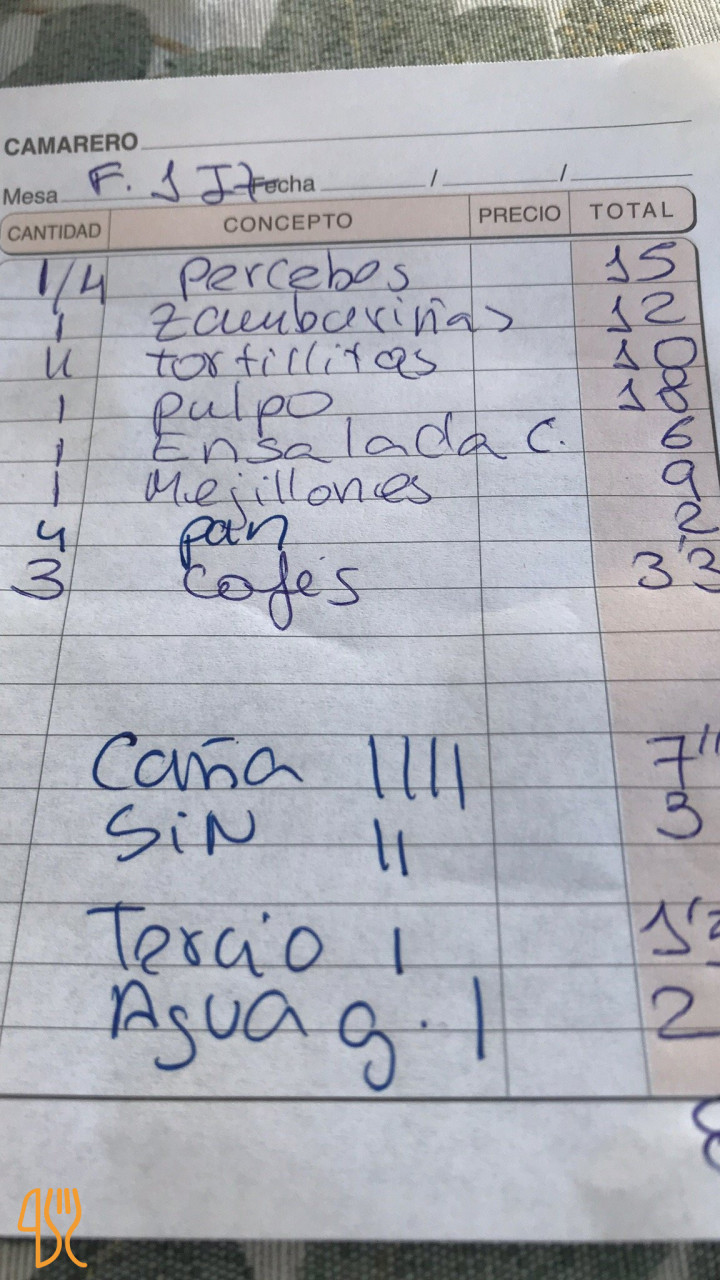 CAMARERO
Mesa F. 1 Fecha / /
CANTIDAD CONCEPTO PRECIO TOTAL
1/4 percebos 15
1 Zamburiñas 12
4 tortillitas 10
1 pulpo 18
1 Ensalada C. 6
1 Mejillones 9
4 pan 2
3 Cafés 3'3
Caña IIII 7'
SiN II 3
Tercio I 1'
Agua g. I 2